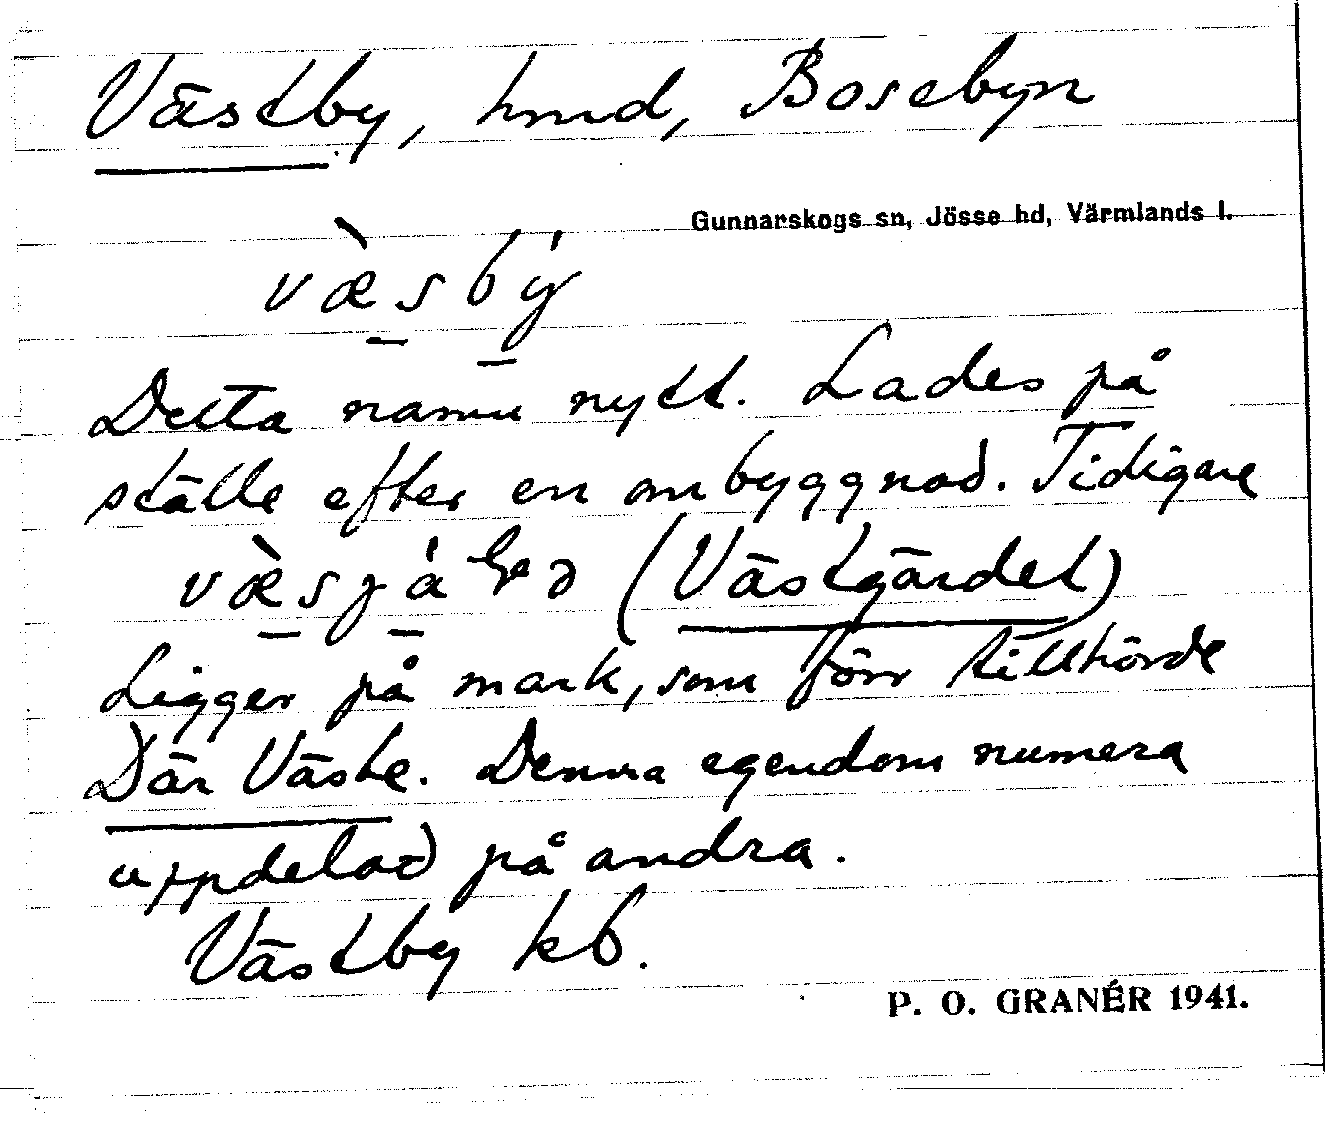 Västby, hmd, Bosebyn
Gunnarskogs sn, Jösse hd, Värmlands l.
væ̀sbý
Detta namn nytt. Lades på
ställe efter en ombyggnad. Tidigare
(Västgärdet)
Ligger på mark, som förr tillhörde
Där Väste. Denna egendom numera
uppdelad på andra.
Västby kb.
P. O. GRANÉR 1941.